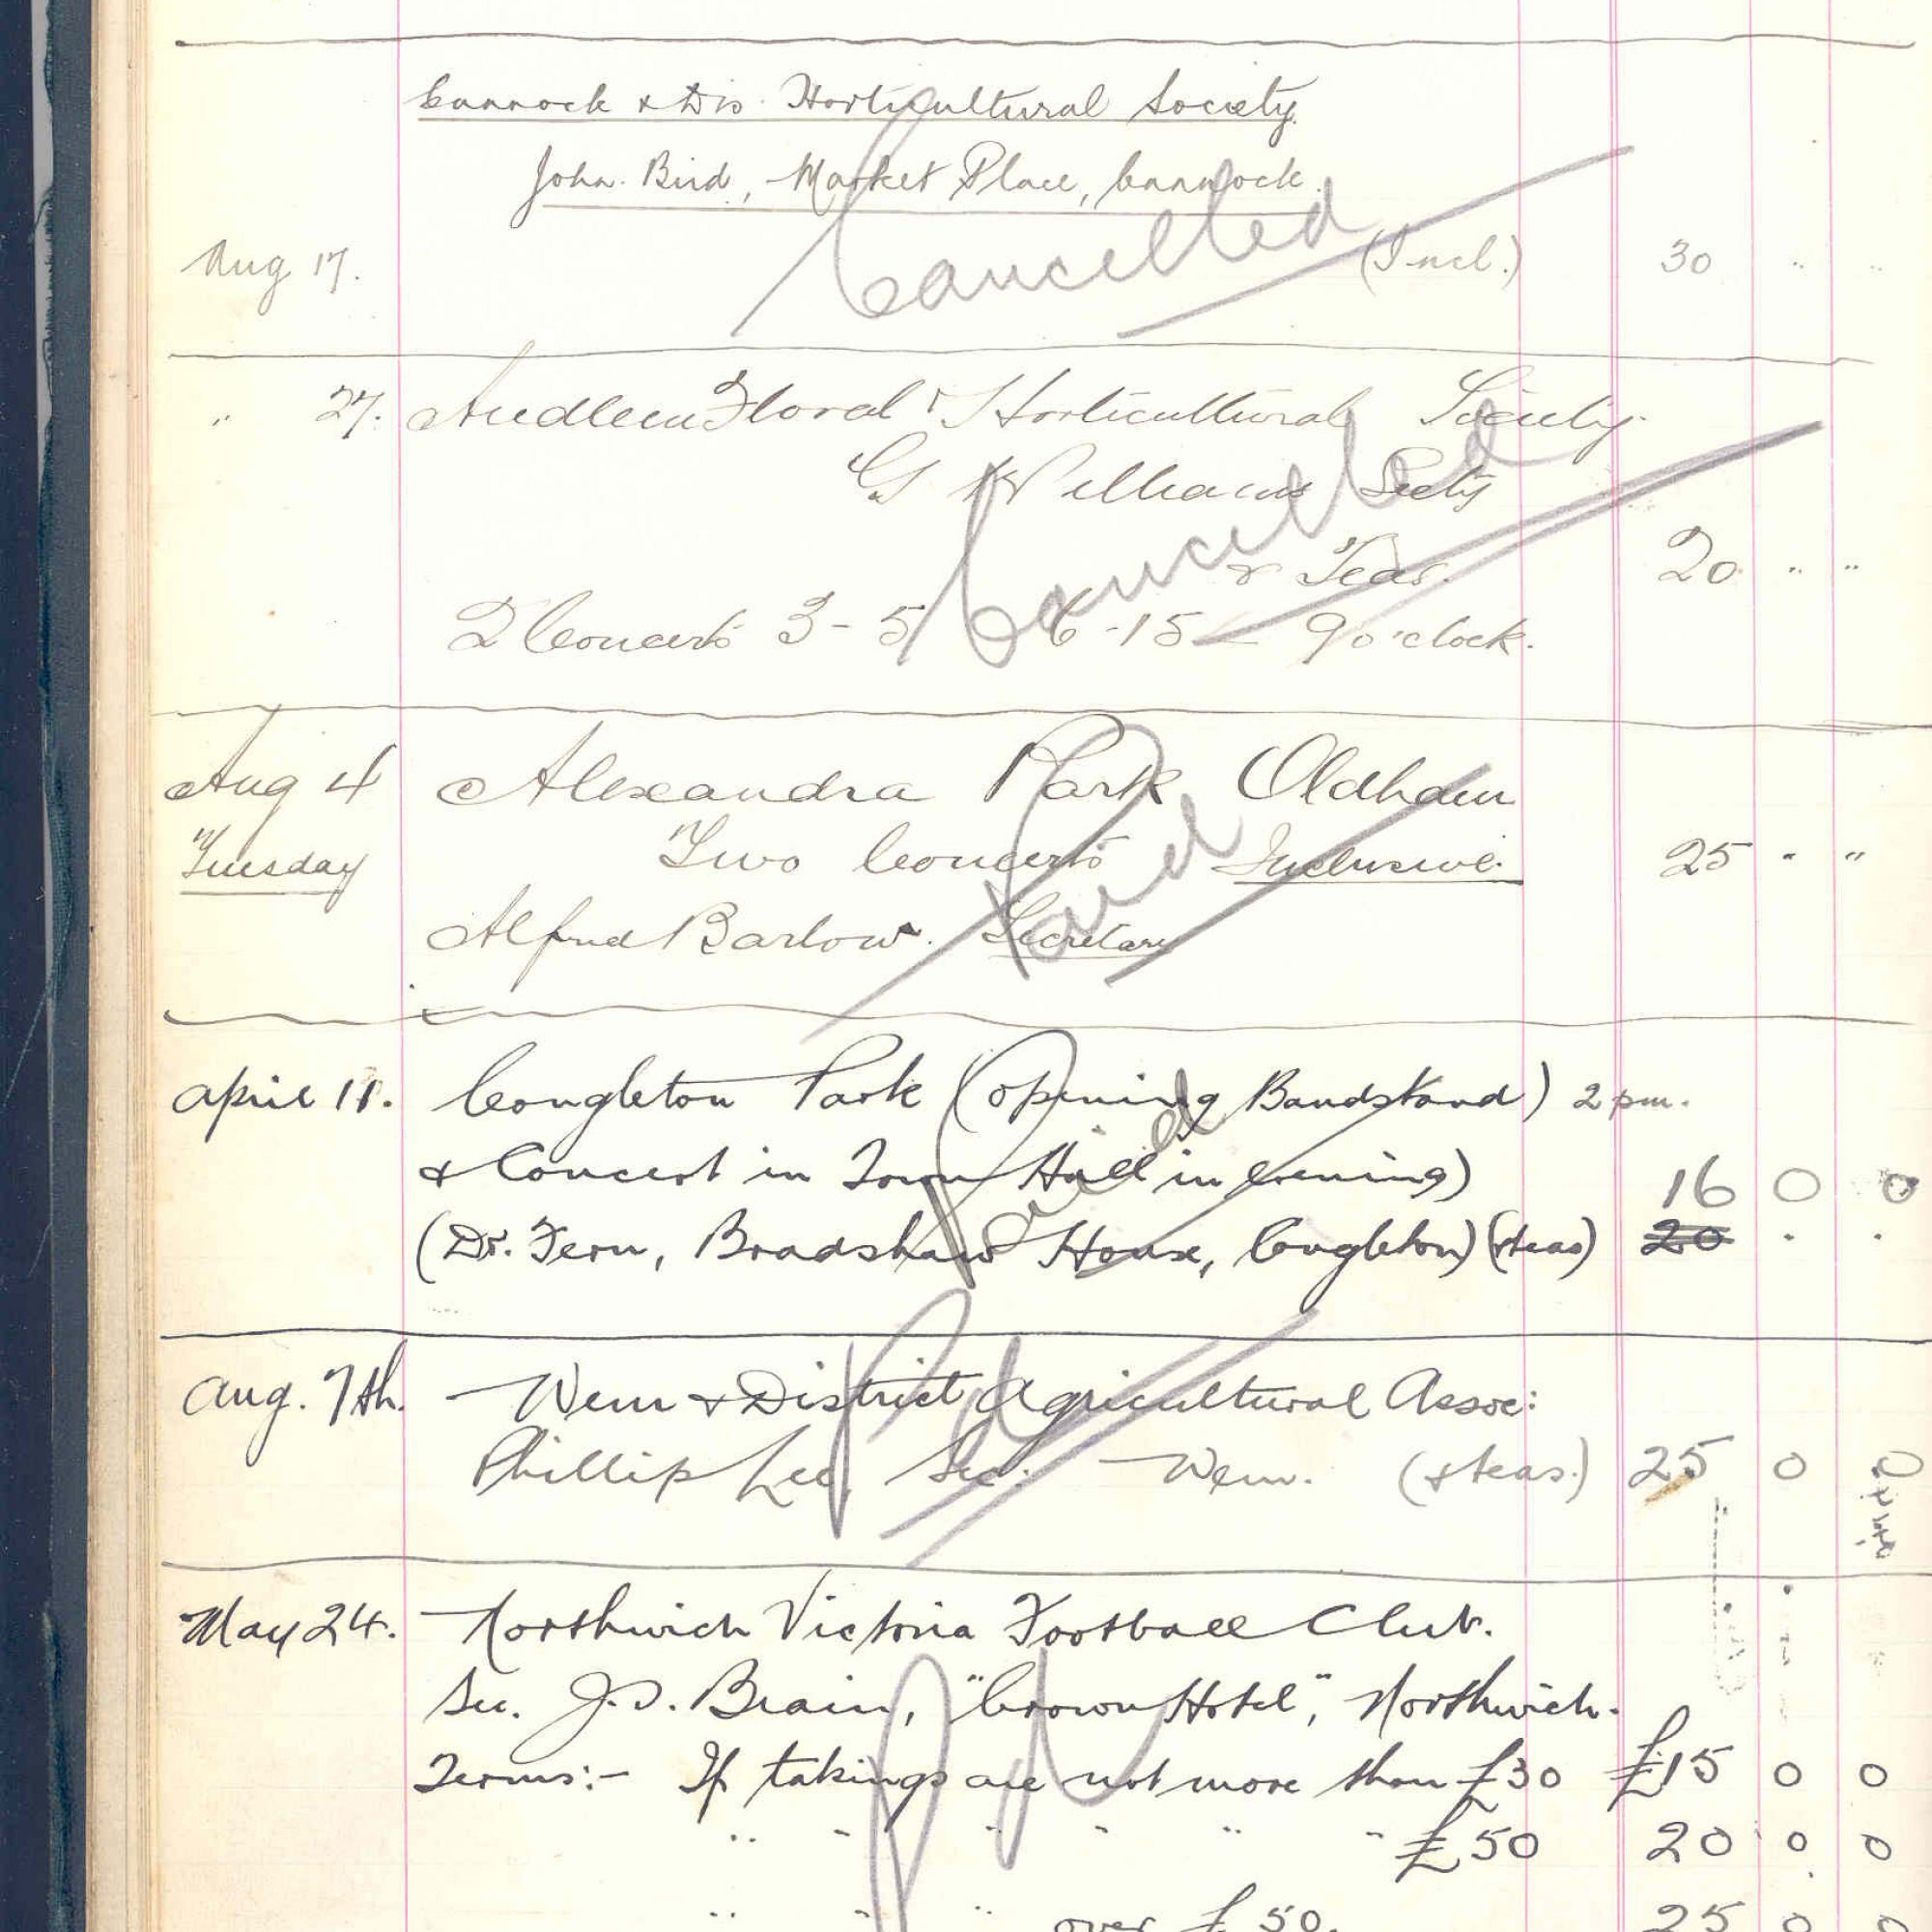 Cannock & Dis. Horticultural Society.
John. Bird, Market Place, Cannock.
Cancelled
Aug 17. (Incl.) 30 " "
" 27. Audlem Floral & Horticultural Society.
G Williams Secty
Cancelled
& Teas. 20 " "
2 Concerts 3-5 6-15 - 9 o'clock.
Aug 4 Alexandra Park Oldham
Tuesday Two Concerts Inclusive. 25 " "
Paid
Alfred Barlow. Secretary
April 11. Congleton Park (opening Bandstand) 2 pm.
& Concert in Town Hall in evening) 16 0 0
Paid
(Dr. Fern, Bradshaw House, Congleton) (& teas) 20 " "
Aug. 7th. Wem & District Agricultural Assoc:
Pd
Phillip Lee, Sec. Wem. (& teas.) 25 0 0
May 24. Northwich Victoria Football Club.
Sec. J. Brain, "Crown Hotel", Northwich.
Pd
Terms:- If takings are not more than £30 £15 0 0
" " " " " " £50 20 0 0
" " " over £50. 25 0 0